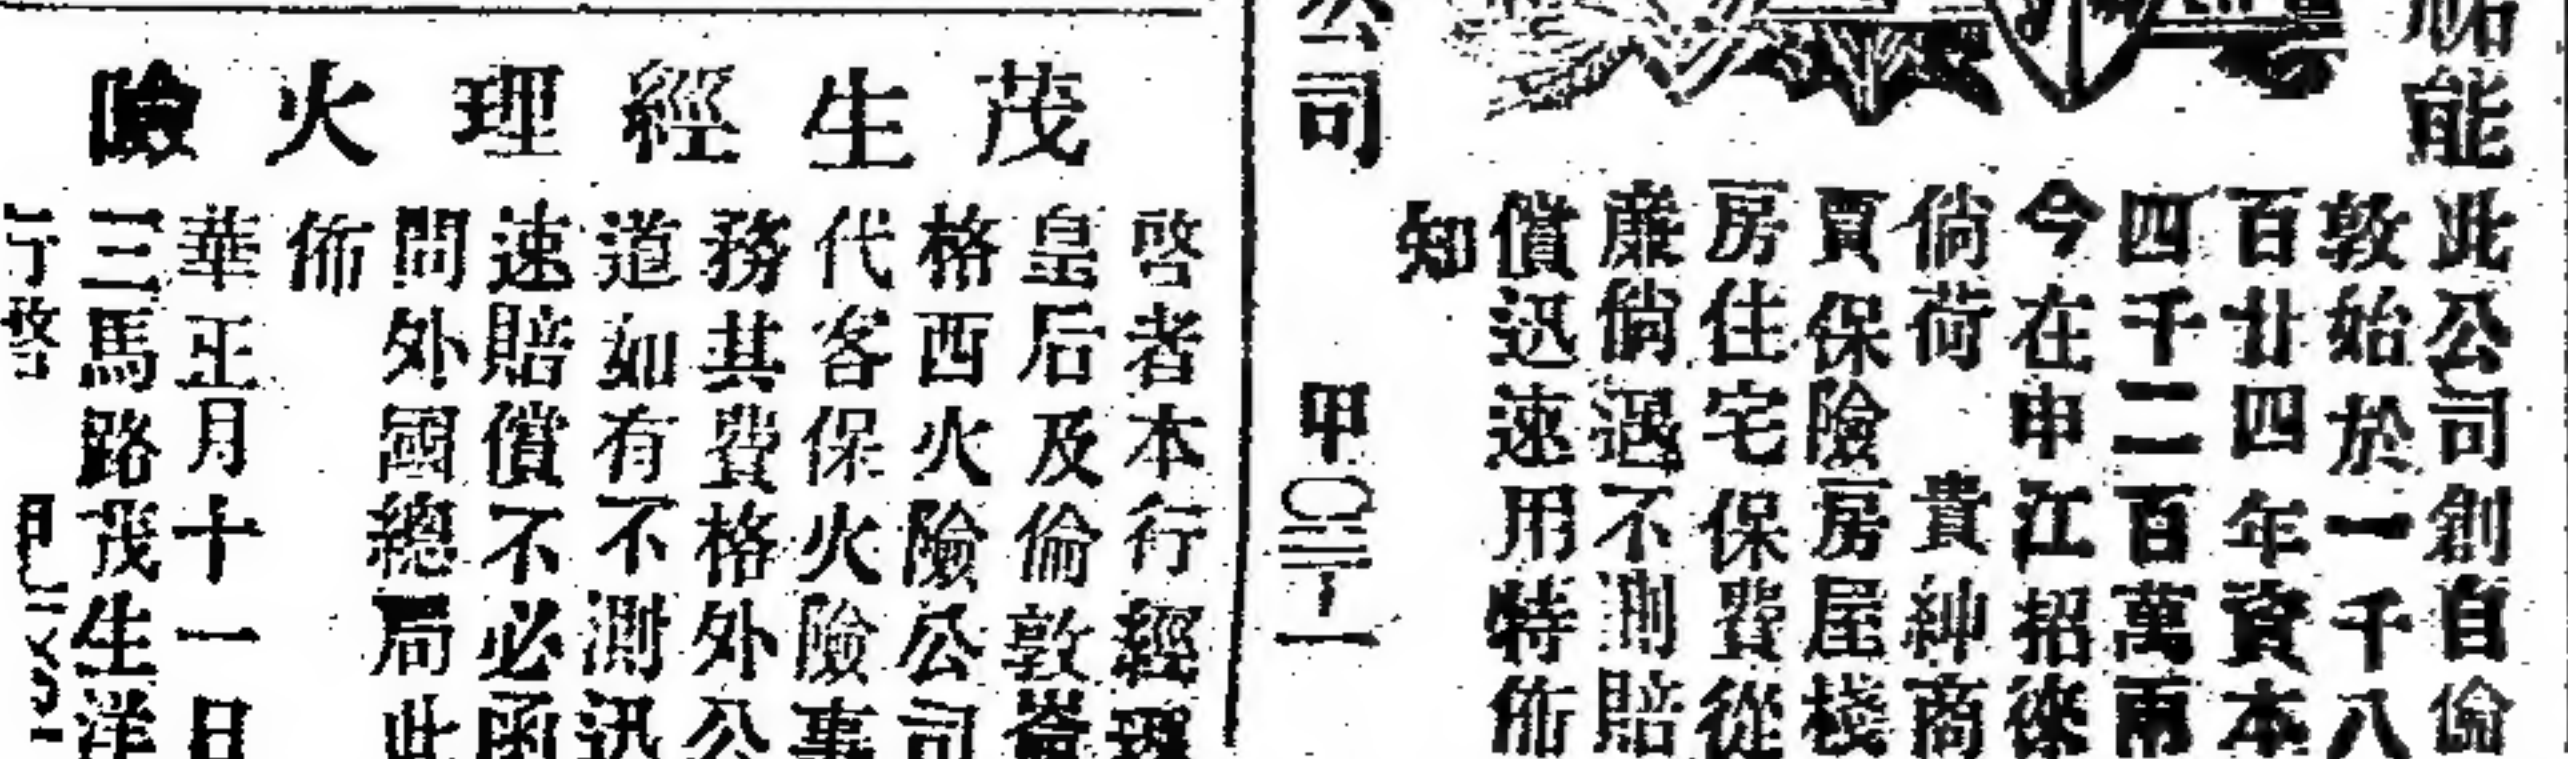 能
此公司創自倫
敦始於一千八
百廿四年資本
四千二百萬兩
今在申江招徠
倘荷 貴紳商
賈保險房屋棧
房住宅保費從
廉倘遇不測賠
償迅速用特佈
知
公司
甲〇三一
茂生經理火險
啓者本行經理
皇后及倫敦
格西火險公司
代客保火險事
務其費格外公
道如有不測迅
速賠償不必函
問外國總局此
佈
華正月十一日
三馬路茂生洋
行啓